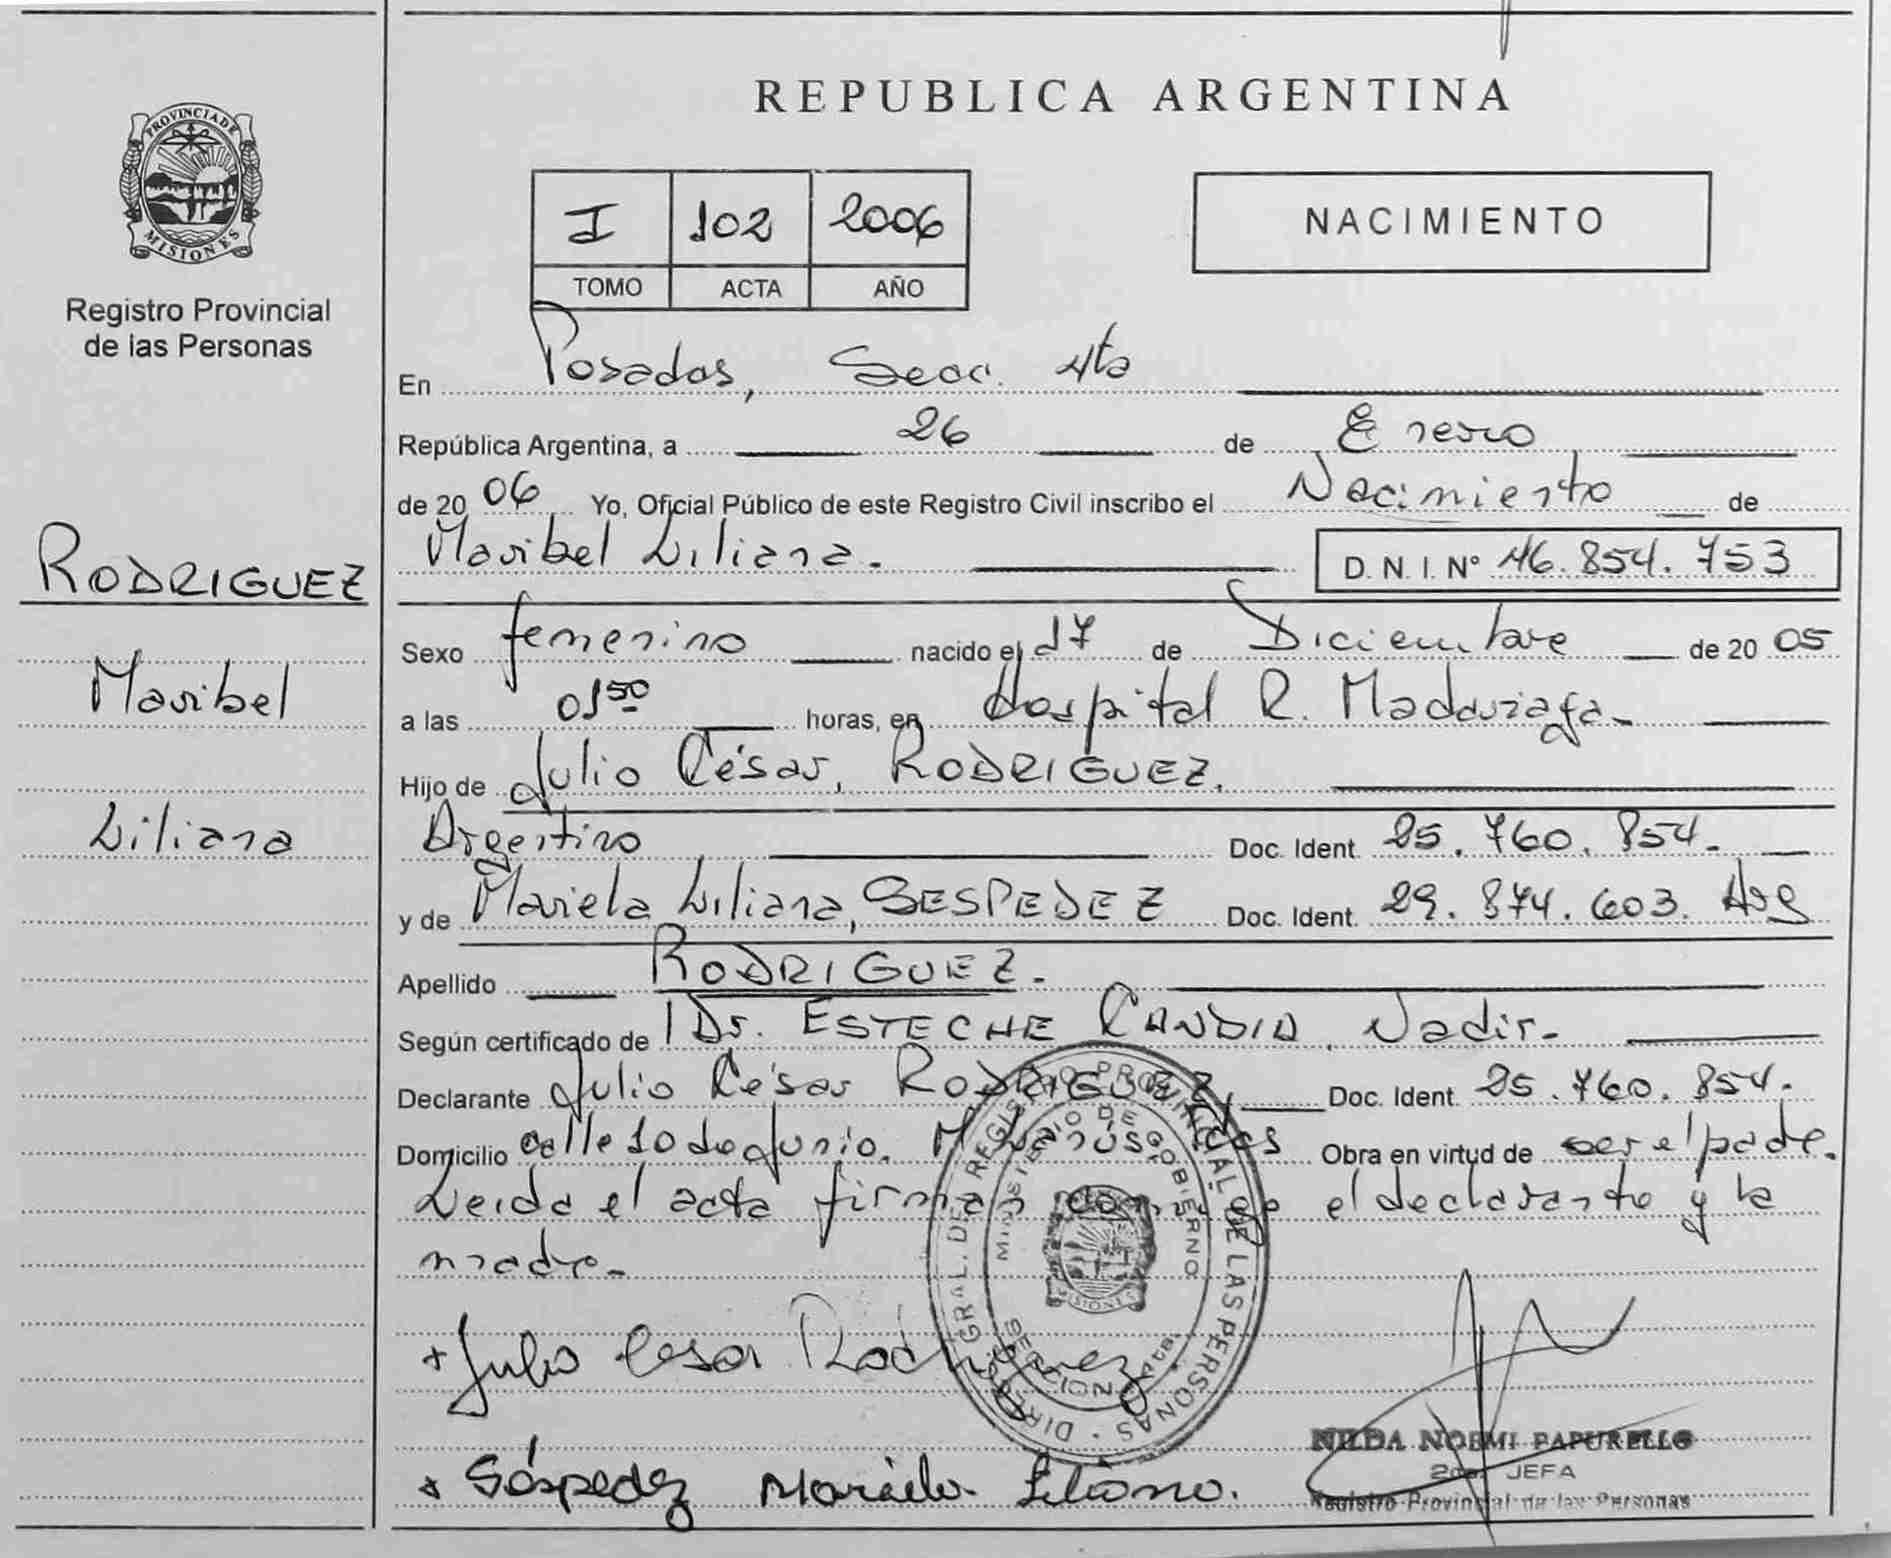 PROVINCIA DE
MISIONES
Registro Provincial
de las Personas
RODRIGUEZ
Maribel
Liliana
REPUBLICA ARGENTINA
I 102 2006
TOMO ACTA AÑO
NACIMIENTO
En Posadas, Secc. 4ta
República Argentina, a 26 de Enero
de 20 06 Yo, Oficial Público de este Registro Civil inscribo el Nacimiento de
Maribel Liliana. D. N. I. N° 46.854.753
Sexo femenino nacido el 17 de Diciembre de 20 05
a las 01 50 horas, en Hospital R. Madariaga.
Hijo de Julio César, RODRIGUEZ.
Argentino Doc. Ident. 25.760.854.
y de Mariela Liliana, SESPEDEZ Doc. Ident. 29.874.603. Arg
Apellido RODRIGUEZ.
Según certificado de Dr. ESTECHE CANDIA, Nadir.
Declarante Julio César RODRIGUEZ, Doc. Ident. 25.760.854.
Domicilio calle 10 de Junio. Lanús, Obra en virtud de ser el padre.
Leida el acta firman conmigo el declarante y la
madre.
+ Julio Cesar Rodriguez
+ Séspedez Mariela Liliana.
DIRECC. GRAL. DE REGISTRO PROVINCIAL DE LAS PERSONAS
MINISTERIO DE GOBIERNO
MISIONES
SECCION 4ta.
NILDA NOEMI PAPURELLO
2da. JEFA
Registro Provincial de las Personas